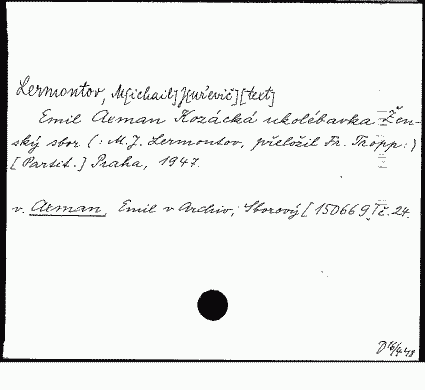 Lermontov, M[ichail] J[urʹevič] [text]
Emil Axman Kozácká ukolébavka Žen-
ský sbor (: M. J. Lermontov, přeložil Fr. Tropp :)
[Partit.] Praha, 1947.
v. Axman, Emil v Archiv, Sborový [150669, I č. 24.